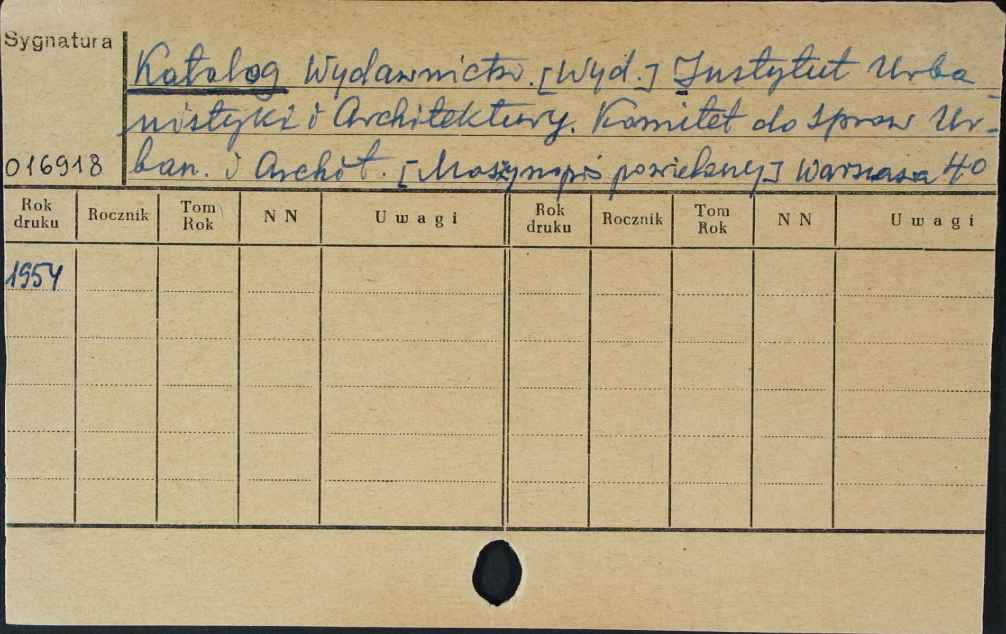 Sygnatura
Katalog Wydawnictw. [Wyd.] Instytut Urba-
nistyki i Architektury. Komitet do spraw Ur-
016918
ban. i Archit. [Maszynopis powielany] Warszawa 40
Rok druku Rocznik Tom Rok N N Uwagi Rok druku Rocznik Tom Rok N N Uwagi
1954